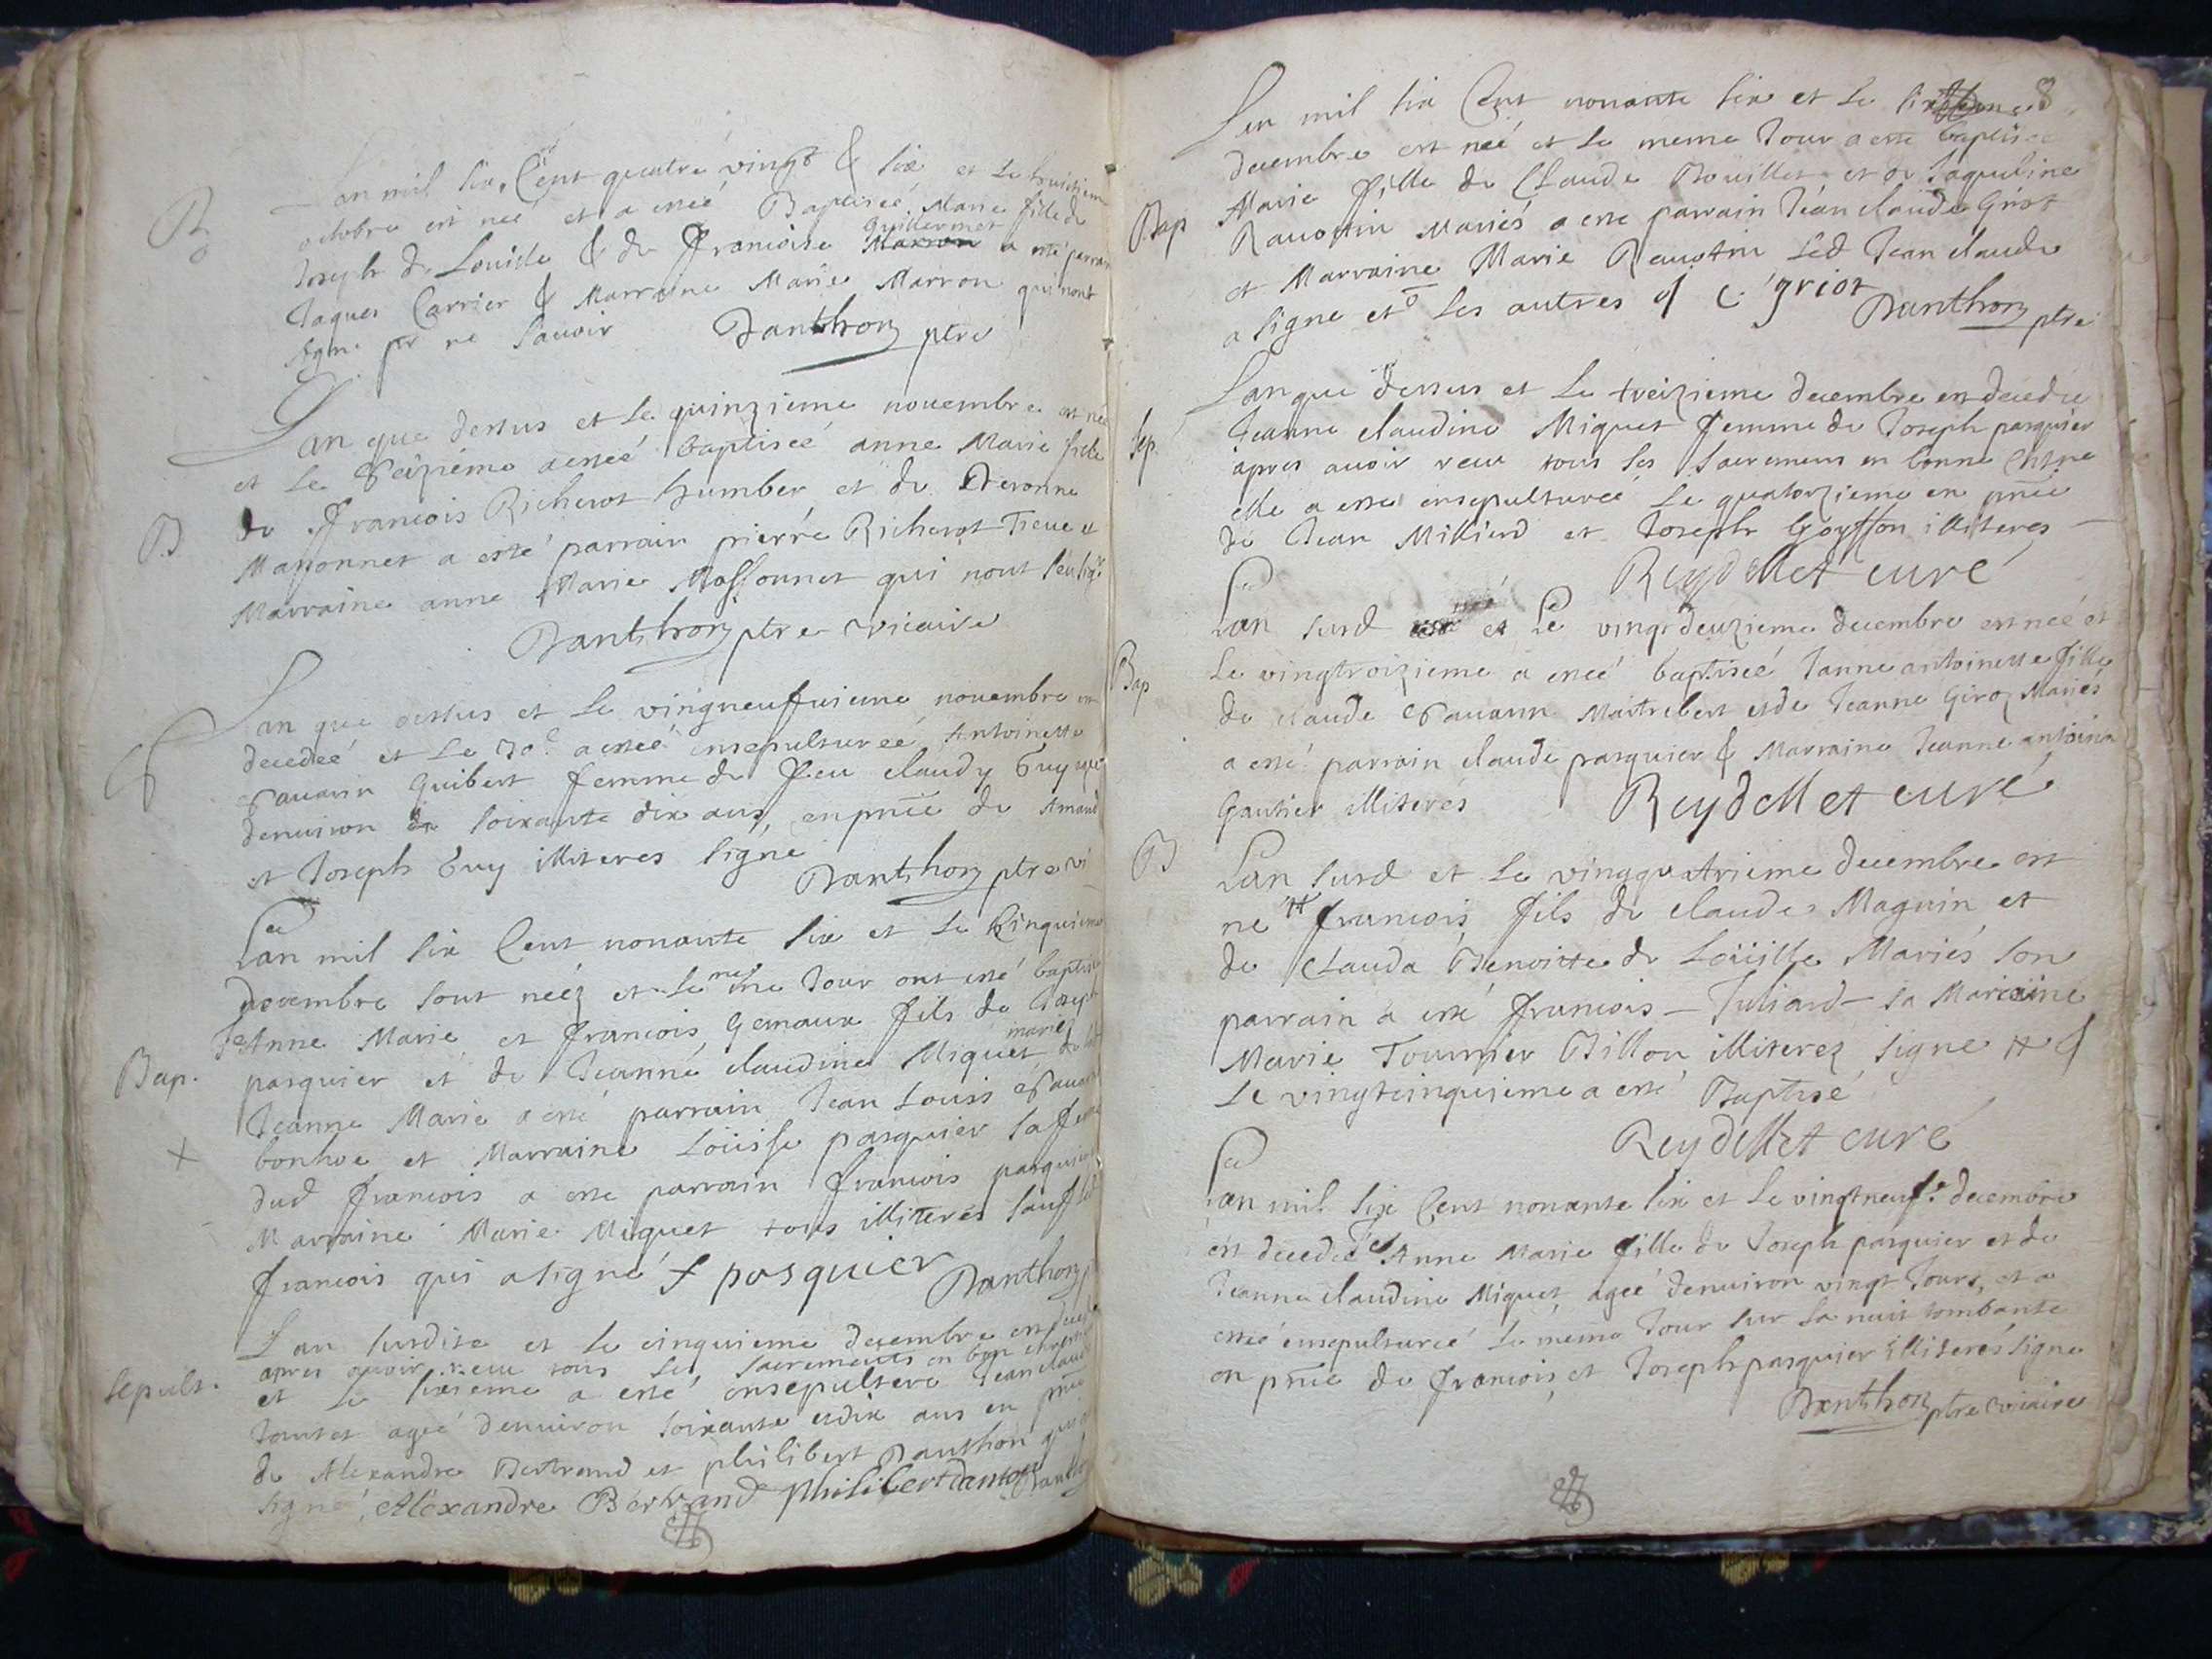 B
an mil six Cent quatre vingt & six et le huictiem
octobre est neé et a esteé Baptiseé Marie fille de
Joseph de Louille & de Francoise Guillermet a esté parrain
Jaques Carrier & Marraine Marie Marron qui nont
signe pr ne scauoir Danthon ptre
Lan que dessus et le quinzieme nouembre est neé
et le seizieme a esteé baptiseé anne Marie fille
B
de Francois Richerot humber et de
Massonnet a esté parrain pierre Richerot Treue et
Marraine anne Marie Massonnet qui nont
Danthon ptre vicaire
Lan que dessus et le vingneufuieme nouembre est
S
decedeé et le 30e a esteé ensepultureé Antoinette
Pauarin Guibert femme de Feu claudy Guy ageé
denuiron soixante dix ans, en pnce de Amand
et Joseph Guy illiteres signe
Danthon ptre vi
Lan mil six Cent nonante six et le cinquieme
decembre sont neéz et le mesme Jour ont esté baptisé
Jeanne Marie et francois Gemaux fils de Joseph
Bap.
pasquier et de Jeanne claudine Miquet mariés de lad
Jeanne Marie a esté parrain Jean Louis Pauarin
+
bonhoe et Marraine Loüise pasquier sa femme
dud francois a esté parrain francois pasquier
Marraine Marie Miquet tous illiterés sauf led
francois qui a signé f pasquier Danthon p
Lan susdite et le cinquieme decembre est decedé
apres auoir receu tous les sacrements en bon chrestien
sepult.
et le sixieme a esté ensepulturé Jean claude
Jantet ageé denuiron soixante et dix ans en pnce
de Alexandre Bertrand et philibert Danthon qui
signé, Aléxandre Bertrand philibert danton Danthon
8
Lan mil six Cent nonante six et le
decembre est neé et le meme Jour a esté baptiseé
Marie fille de Claude Bouillet et de Jaqueline
Bap
Raustin Mariés a esté parrain Jean claude Griot
et Marraine Marie Raustin led Jean claude
a signe et ō les autres J C griot
Danthon ptre
Lan que dessus et le treizieme decembre est decedeé
Sep.
Jeanne claudine Miquet femme de Joseph pasquier
apres auoir receu tous les sacremens en bonne Chrne
elle a esté ensepultureé le quatorzieme en pnce
de Jean Milliend et Joseph Goyffon illiteres
Reydellet curé
Lan susd et Le vingtdeuzieme decembre est neé et
Bap
le vingtroizieme a esteé baptiseé Janne antoinette fille
de claude Pauarin Maitrebert et de Jeanne Giroz Mariés
a esté parrain claude pasquier & Marraine Jeanne antoinette
Gautier illiterés Reydellet curé
B
Lan susd et le vingquatrieme decembre est
né # francois fils de claude Magnin et
de Clauda Benoitte de Loüille Mariés son
parrain a esté francois Juliard sa Marraine
Marie Tournier Billon illiterez signe # &
Le vingtcinquieme a esté Baptisé
Reydellet curé
Lan mil six Cent nonante six et Le vingtneufe decembre
est decedeé Jeanne Marie fille de Joseph pasquier et de
Jeanne claudine Miquet, ageé denuiron vingt Jours, et a
esteé ensepultureé le meme Jour sur la nuit tombante
en pnce de francois et Joseph pasquier illiterés signe
Danthon ptre vicaire